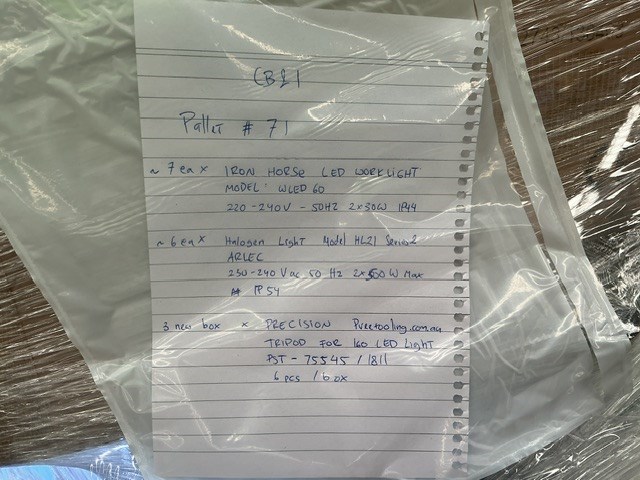 (B21)
Pallet # 71
~ 7 ea x IRON HORSE LED WORKLIGHT
MODEL: WLED 60
220-240V - 50HZ 2x30W IP44
~ 6 ea x Halogen Light Model HL21 Series 2
ARLEC
230-240 Vac 50 Hz 2x500W Max
IP54
3 new box x PRECISION Puretooling.com.au
TRIPOD FOR 160 LED Light
PST-75545/1811
6 pcs / box